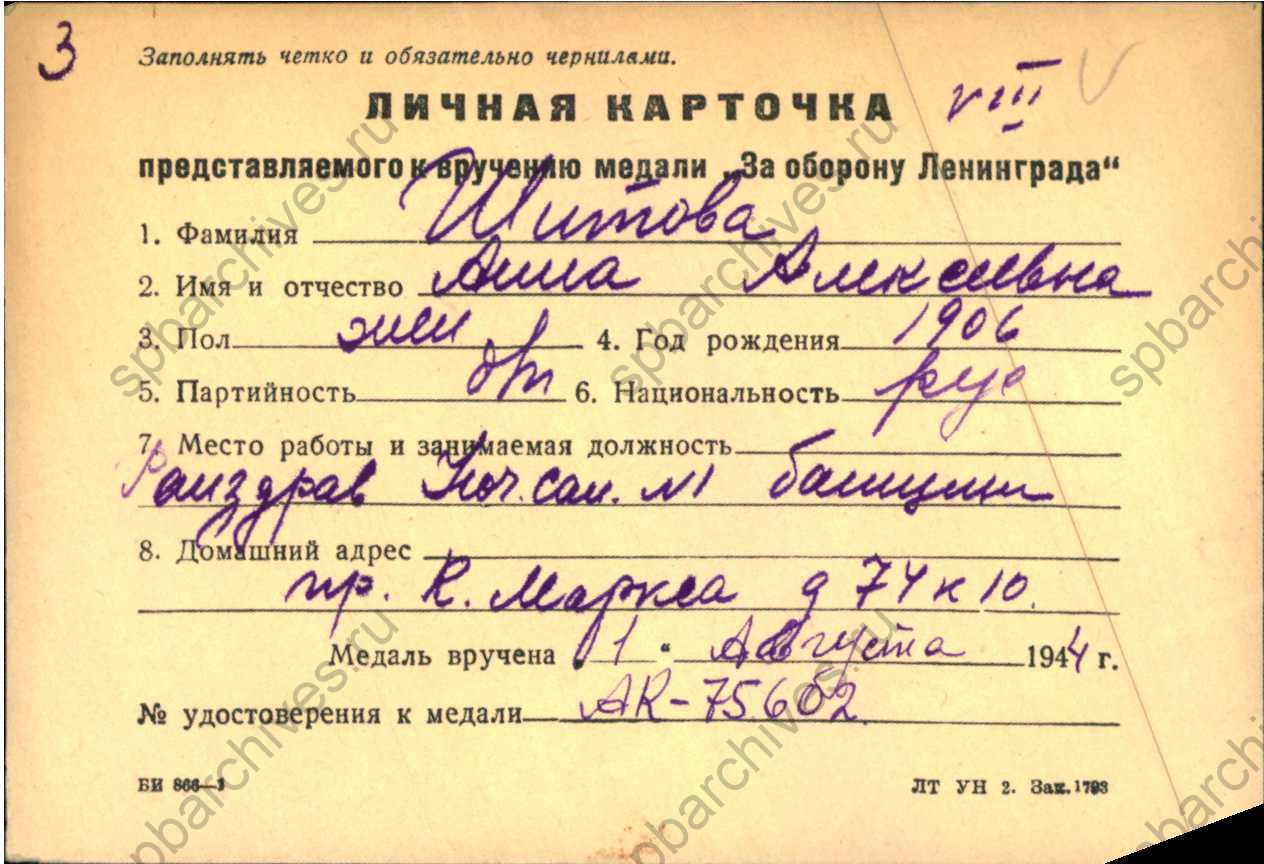 3
Заполнять четко и обязательно чернилами.
ЛИЧНАЯ КАРТОЧКА VIII V
представляемого к вручению медали „За оборону Ленинграда“
1. Фамилия Шитова
2. Имя и отчество Анна Алексеевна
3. Пол жен 4. Год рождения 1906
5. Партийность б/п 6. Национальность рус
7. Место работы и занимаемая должность
Райздрав Ноч. сан. №1
8. Домашний адрес
пр. К. Маркса д 74 к 10.
Медаль вручена „1“ Августа 1944 г.
№ удостоверения к медали АК-75662
БИ 866—1 ЛТ УН 2. Зак. 1793
spbarchives.ru